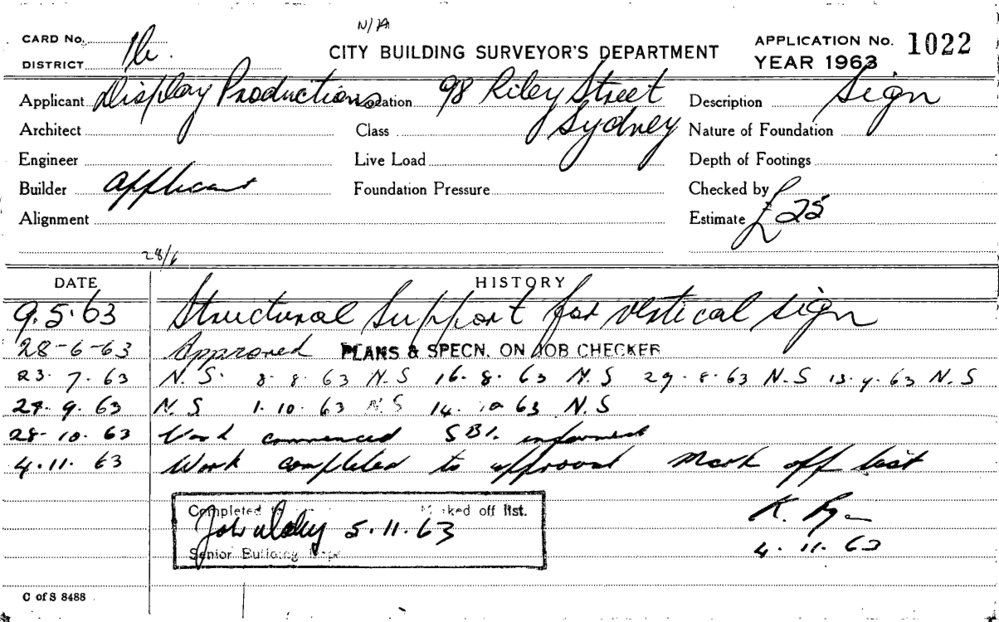 N/A
CARD No.
DISTRICT 1b.
CITY BUILDING SURVEYOR'S DEPARTMENT
APPLICATION No. 1022
YEAR 1963
Applicant Display Productions Location 98 Riley Street Description Sign
Architect Class Sydney Nature of Foundation
Engineer Live Load Depth of Footings
Builder applicant Foundation Pressure Checked by
Alignment Estimate £25
28/6
DATE HISTORY
9.5.63 Structural Support for vertical sign
28-6-63 Approved PLANS & SPECN. ON JOB CHECKER
23.7.63 N.S. 8.8.63 N.S 16.8.63 N.S 29.8.63 N.S 13.9.63 N.S
27.9.63 N.S 1.10.63 N.S 14.10.63 N.S
28-10.63 Work commenced SBI. informed
4.11.63 Work completed to approval Mark off list
Completed Marked off list.
5.11.63
Senior Building
K.
4.11.63
C of S 8488